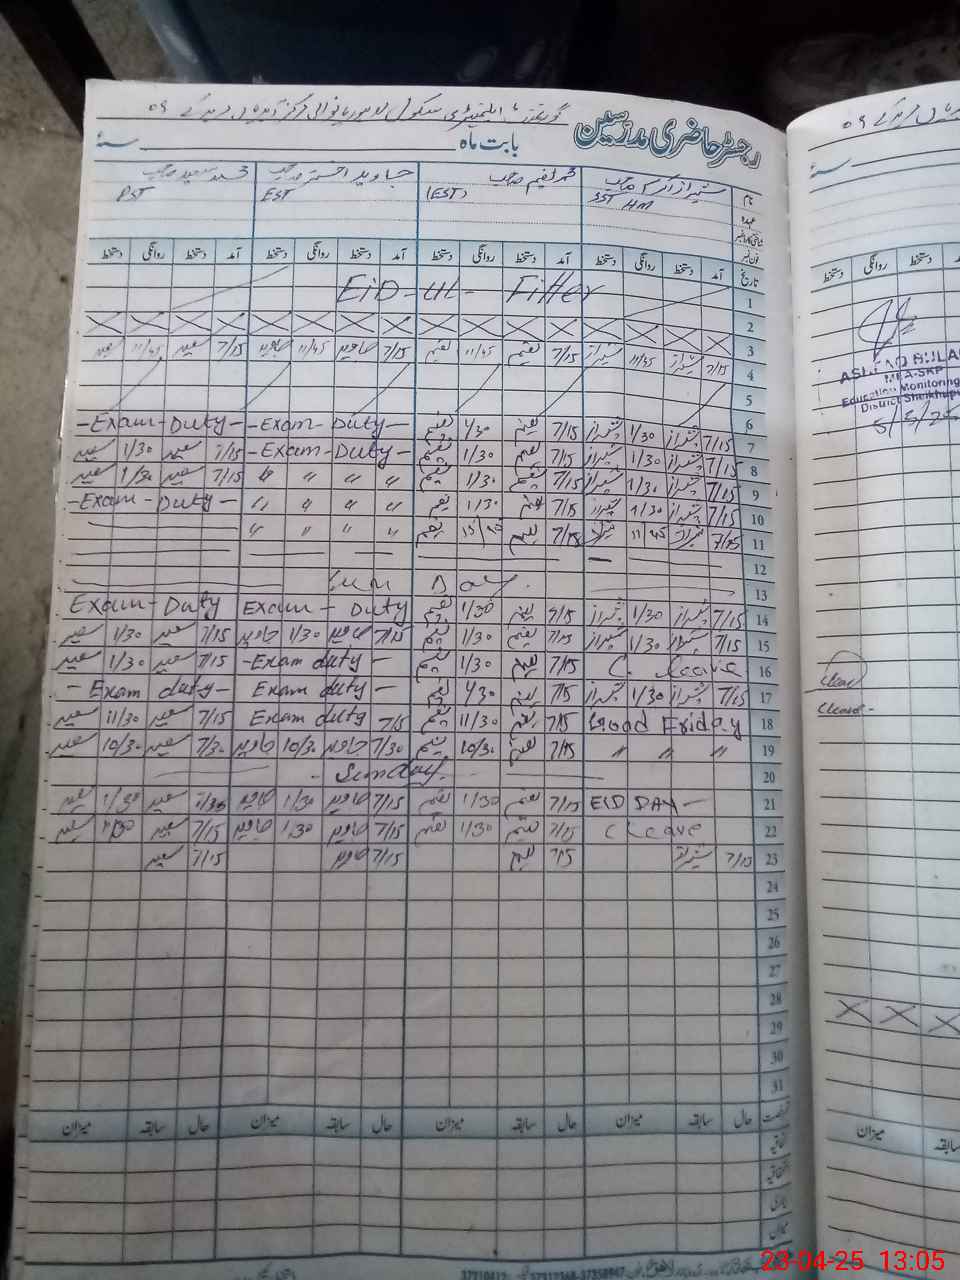 رجسٹر حاضری مدرسین
بابت ماہ
سنہ
نام
عہدہ
شیراز اکرم صاحب
SST HM
محمد نعیم صاحب
(EST)
جاوید اختر صاحب
EST
محمد سعید صاحب
PST
تاریخ آمد دستخط روانگی دستخط آمد دستخط روانگی دستخط آمد دستخط روانگی دستخط آمد دستخط روانگی دستخط
1 EID-UL-Fitter
2
3
4 7/15 شیراز 11/45 شیراز 7/15 نعیم 11/45 نعیم 7/15 جاوید 11/45 جاوید 7/15 سعید 11/45 سعید
5
6
7 7/15 شیراز 1/30 شیراز 7/15 نعیم 1/30 نعیم -Exam-Duty- -Exam-Duty-
8 7/15 شیراز 1/30 شیراز 7/15 نعیم 1/30 نعیم -Exam-Duty- 7/15 سعید 1/30 سعید
9 7/15 شیراز 1/30 شیراز 7/15 نعیم 1/30 نعیم " " " " 7/15 سعید 1/30 سعید
10 7/15 شیراز 1/30 شیراز 7/15 نعیم 1/30 نعیم " " " " -Exam-Duty-
11 7/15 شیراز 11/45 شیراز 7/15 نعیم نعیم " " " "
12
13 Sun Day
14 7/15 شیراز 1/30 شیراز 7/15 نعیم 1/30 نعیم Exam-Duty Exam-Duty
15 7/15 شیراز 1/30 شیراز 7/15 نعیم 1/30 نعیم 7/15 جاوید 1/30 جاوید 7/15 سعید 1/30 سعید
16 C. Leave 7/15 نعیم 1/30 نعیم -Exam duty- 7/15 سعید 1/30 سعید
17 7/15 شیراز 1/30 شیراز 7/15 نعیم 1/30 نعیم Exam duty- -Exam duty-
18 Good Friday 7/15 نعیم 11/30 نعیم Exam duty 7/15 7/15 سعید 11/30 سعید
19 " " " 7/15 نعیم 10/30 نعیم 7/30 جاوید 10/30 جاوید 7/30 سعید 10/30 سعید
20 - Sunday.
21 EID DAY- 7/15 نعیم 1/30 نعیم 7/15 جاوید 1/30 جاوید سعید 1/30 سعید
22 C Leave 7/15 نعیم 1/30 نعیم 7/15 جاوید 1/30 جاوید 7/15 سعید 1/30 سعید
23 7/15 شیراز 7/15 نعیم 7/15 جاوید 7/15 سعید
24
25
26
27
28
29
30
31
رخصت حال سابقہ میزان حال سابقہ میزان حال سابقہ میزان حال سابقہ میزان
اتفاقیہ
بیماری
میزان
دستخط روانگی دستخط
MEA-SKP
Education Monitoring
District Sheikhupu
5/5/25
میزان سابقہ
23-04-25 13:05